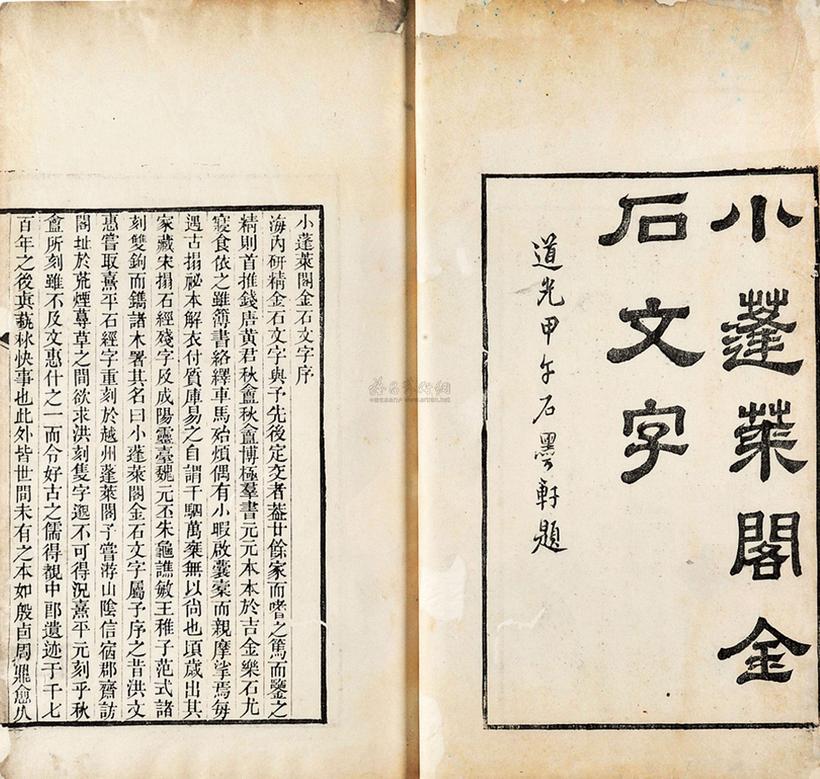 小蓬萊閣金
石文字
道光甲午石墨軒題
小蓬萊閣金石文字序
海內研精金石文字與予先後定交者葢廿餘家而嗜之篤而鑒之
精則首推錢唐黃君秋盦秋盦博極羣書元元本本於吉金樂石尤
寢食依之雖簿書絡繹車馬殆煩偶有小暇啟囊橐而親摩挲焉每
遇古搨祕本解衣付質庫易之自謂千駟萬乘無以尙也頃歲出其
家藏宋搨石經殘字及成陽靈臺魏元丕朱龜譙敏王稚子范式諸
刻雙鉤而鐫諸木署其名曰小蓬萊閣金石文字屬予序之昔洪文
惠嘗取熹平石經字重刻於越州蓬萊閣予嘗游山陰信宿郡齋訪
閣址於荒煙蔓草之間欲求洪刻隻字邈不可得況熹平元刻乎秋
盦所刻雖不及文惠什之一而令好古之儒得覩中郎遺迹于千七
百年之後眞藝林快事也此外皆世間未有之本如殷卣周鼎愈人